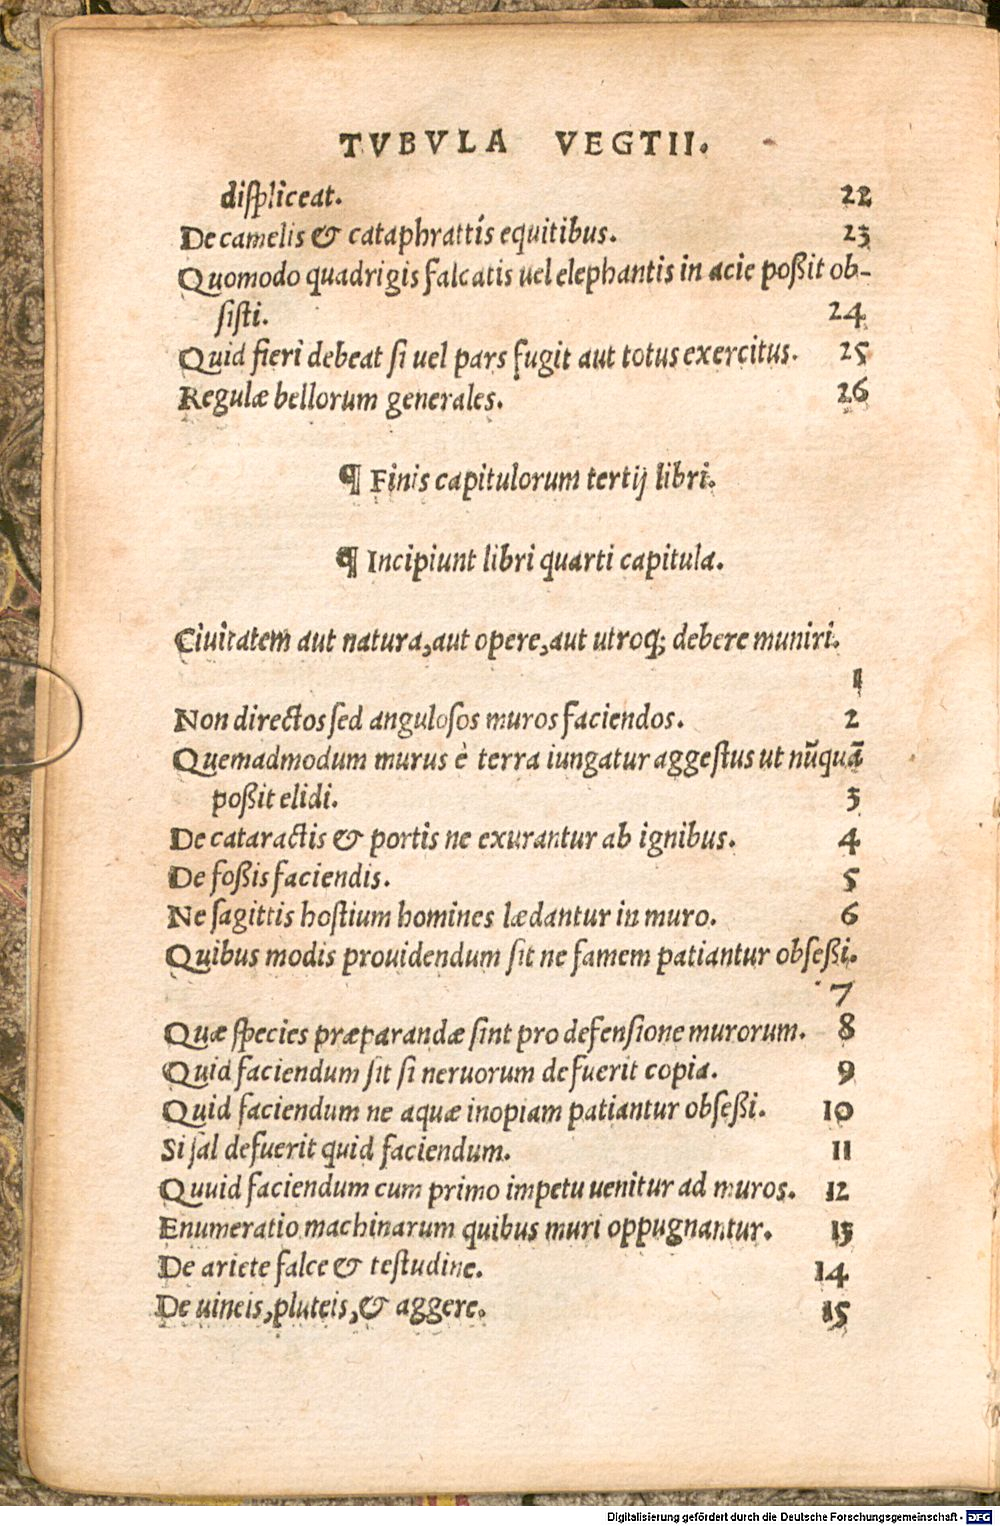 TVBVLA VEGTII.
diſpliceat. 22
De camelis & cataphrattís equitibus. 23
Quomodo quadrigis falcatis uel elephantis in acie poßit ob-
ſiſti. 24
Quid fieri debeat ſi uel pars fugit aut totus exercitus. 25
Regulæ bellorum generales. 26
¶ Finis capitulorum tertij libri.
¶ Incipiunt libri quarti capitula.
Ciuitatem aut natura, aut opere, aut utroq; debere muniri.
1
Non directos ſed anguloſos muros faciendos. 2
Quemadmodum murus è terra iungatur aggeſtus ut nūquā
poßit elidi. 3
De cataractis & portis ne exurantur ab ignibus. 4
De foßis faciendis. 5
Ne ſagittis hoſtium homines lædantur in muro. 6
Quibus modis prouidendum ſit ne famem patiantur obſeßi.
7
Quæ ſpecies præparandæ ſint pro defenſione murorum. 8
Quid faciendum ſit ſi neruorum defuerit copia. 9
Quid faciendum ne aquæ inopiam patiantur obſeßi. 10
Si ſal defuerit quid faciendum. 11
Quuid faciendum cum primo impetu uenitur ad muros. 12
Enumeratio machinarum quibus muri oppugnantur. 13
De ariete falce & teſtudine. 14
De uineis, pluteis, & aggere. 15
Digitalisierung gefördert durch die Deutsche Forschungsgemeinschaft - DFG